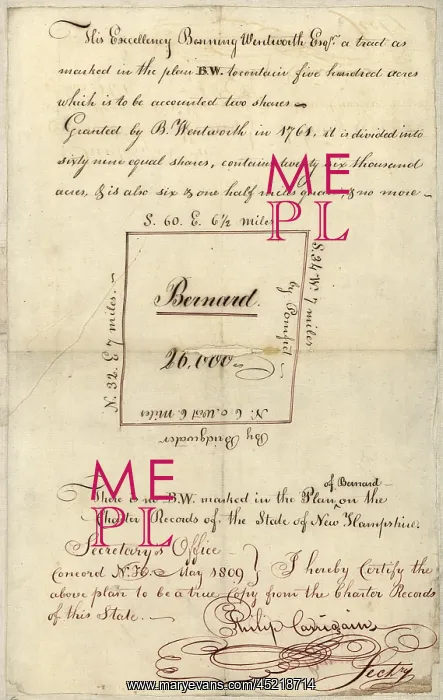 His Excellency Benning Wentworth Esqr. a tract as
marked in the plan B.W. to contain five hundred acres
which is to be accounted two shares
Granted by B. Wentworth in 1761, it is divided into
sixty nine equal shares, containg twenty six thousand
acres, & is also six & one half miles square, & no more
S. 60. E. 6½ miles
N. 32. E 7 miles.
Bernard.
26,000
S. 34 W. 7 miles
by Pomfret
N. 60. West 6. miles
By Bridgwater
of Bernard
There is no B.W. marked in the Plan, on the
Charter Records of the State of New Hampshire.
Secretary's Office
Concord N.H. May 1809 } I hereby Certify the
above plan to be a true Copy from the Charter Records
of this State.
Philip Carrigain
Secty
ME
PL
ME
PL
www.maryevans.com/45218714